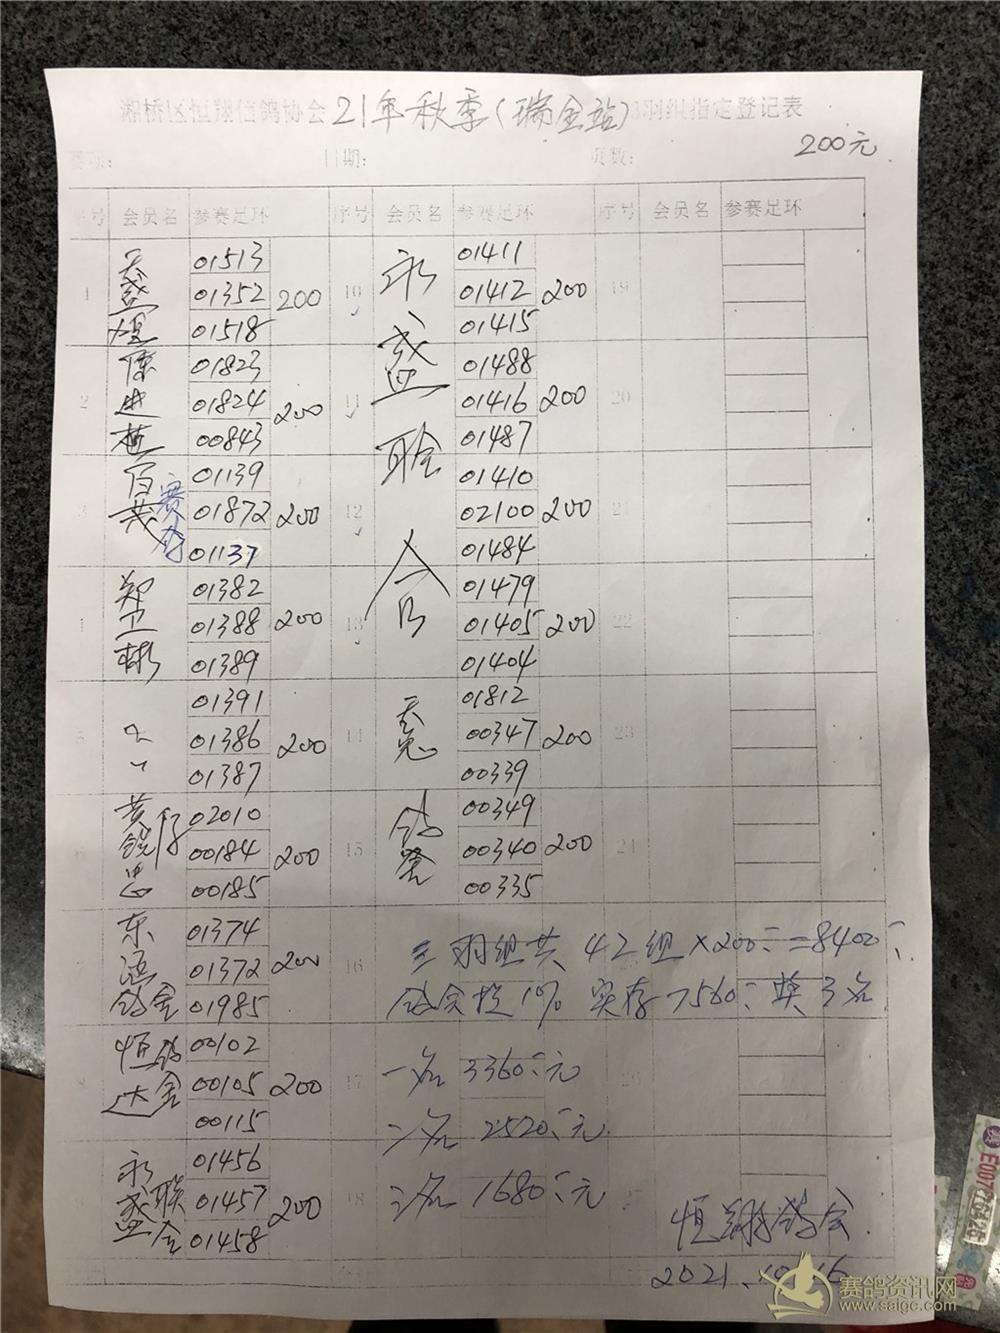 湘桥区恒翔信鸽协会21年秋季(瑞金站)3羽组指定登记表
200元
日期: 页数:
序号 会员名 参赛足环 序号 会员名 参赛足环 序号 会员名 参赛足环
1 天盛煌 01513 01352 01518 200
2 陈进植 01823 01824 00843 200
3 百茂赛鸽 01139 01872 01137 200
郑卫彬 01382 01388 01389 200
5 01391 01386 01387 200
黄锐忠 02010 00184 00185 200
东海鸽舍 01374 01372 01985 200
8 恒达鸽舍 00102 00105 00115 200
永盛联合 01456 01457 01458 200
永盛联合
10 01411 01412 01415 200
11 01488 01416 01487 200
12 01410 02100 01484 200
13 01479 01405 01404 200
天鸽舍
14 01812 00347 00339 200
15 00349 00340 00335 200
16
17
18
19
20
21
22
23
24
26
三羽组共42组×200=8400
鸽会提10% 实存7560 奖3名
一名 3360元
二名 2520元
三名 1680元
恒翔鸽会
2021.10.16
赛鸽资讯网
www.saigc.com
E0077626